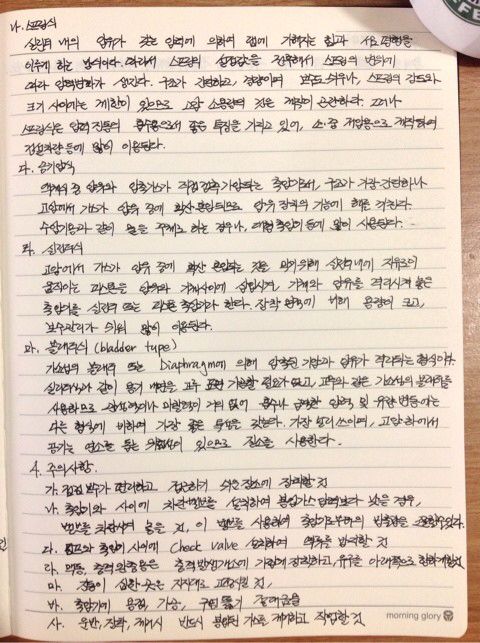 나. 스프링식
실린더 내의 압유가 갖는 압력에 의하여 램에 가해지는 힘과 서로 평형을
이루게 하는 방식이다. 따라서 스프링의 설정값을 적용해서 스프링의 변위에
따라 압력변화가 생긴다. 구조가 간단하고, 경량이며 보수도 쉬우나, 스프링의 강도와
크기 사이에는 제한이 있으므로 고압 소용량의 것은 제작이 곤란하다. 그러나
스프링식은 압력 진동의 흡수용으로서 좋은 특징을 가지고 있어, 소·중 저압용으로 제작되어
건설차량 등에 많이 이용된다.
다. 공기압식
역게의 중 압유와 압축가스가 직접 접촉 가압되는 축압기로서, 구조가 가장 간단하나
고압에서 가스가 압유 중에 확산 혼입되므로 압유 장치의 기능에 해를 끼친다.
수압기용과 같이 물을 주체로 하는 경우나, 대형 축압기 등에 많이 사용된다.
라. 실린더식
고압에서 가스가 압유 중에 확산 혼입되는 것을 막기 위해 실린더 내에 자유로이
움직이는 피스톤을 압유와 기체사이에 삽입시켜, 기체와 압유를 격리시켜 놓은
축압기를 실린더 또는 피스톤 축압기라 한다. 장착 면적에 비해 용량이 크고,
보수관리가 쉬워 많이 이용된다.
마. 블래더식 (bladder type)
가소성의 블래더 또는 Diaphragm에 의해 압축된 기압과 압유가 격리되는 형식이다.
실린더식과 같이 용기 내면을 고우 표면 가공할 필요가 없고, 고무와 같은 가소성의 블래더를
사용하므로 관성력이나 마찰력이 거의 없어 흡수나 급격한 압력 및 유량 변동에는
다른 형식에 비하여 가장 좋은 특징을 갖는다. 가장 널리 쓰이며, 고압 하에서
공기는 연소를 돕는 위험성이 있으므로 질소를 사용한다.
4. 주의사항.
가. 점검 보수가 편리하고 접근하기 쉬운 장소에 장치할 것
나. 축압기와 사이에 차단밸브를 설치하여 봉입가스 압력보다 낮은 경우,
밸브를 차단시켜 놓을 것, 이 밸브를 사용하여 축압기로부터의 방출량을 조절할 수 있다.
다. 펌프와 축압기 사이에 Check valve 설치하여 역류를 방지할 것
라. 맥동, 충격 완충용은 충격 발생개소에 가깝게 장착하고, 유구를 아래쪽으로 향하게 할 것
마. 진동이 심한 곳은 지지대로 고정시킬 것,
바. 축압기에 용접, 가공, 구멍 뚫기 절대금물
사. 운반, 장착, 제거시 반드시 봉입된 가스를 제거하고 작업할 것
morning glory